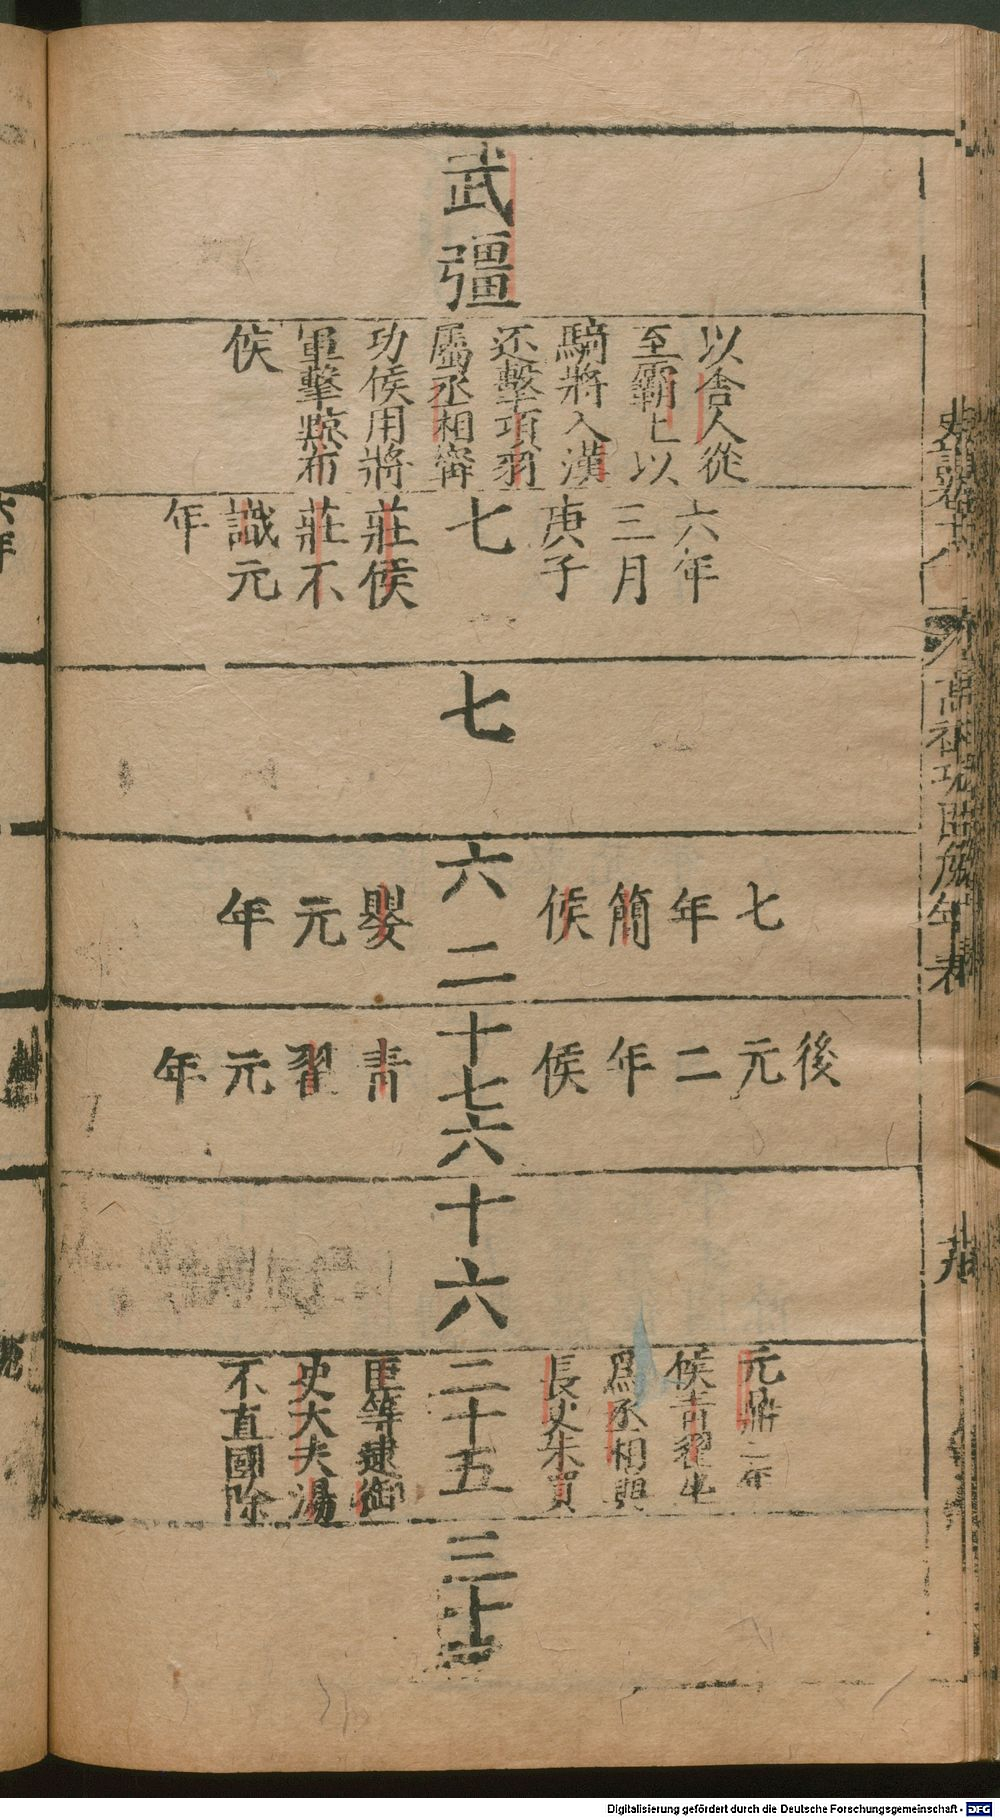 武彊
以舍人從
至霸上以
騎將入漢
还擊項羽
屬丞相甯
功侯用將
軍擊黥布
侯
六年
三月
庚子
七
莊侯
莊不
識元
年
七
七
年
簡
侯
六
二
嬰
元
年
後
元
二
年
侯
十七
六
青
翟
元
年
十六
元鼎二年
侯青翟坐
爲丞相與
長史朱買
二十五
臣等逮御
史大夫湯
不直國除
三十三
史記卷十八
高祖功臣侯年表
Digitalisierung gefördert durch die Deutsche Forschungsgemeinschaft - DFG